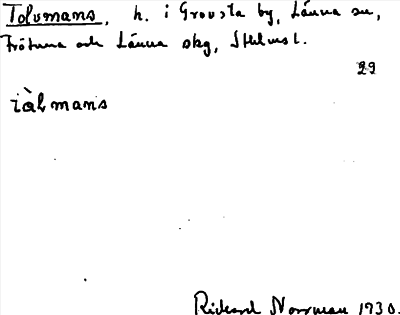 Tolvmans, h. i Grovsta by, Länna sn,
Frötuna och Länna skg, Sthlms l.
29
tòlmans
Rickard Norrman 1930.